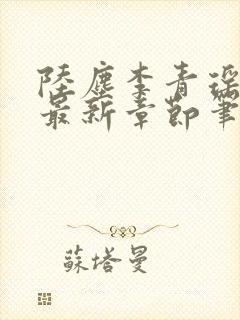 陸塵李青瑤
最新章節筆
蘇塔曼